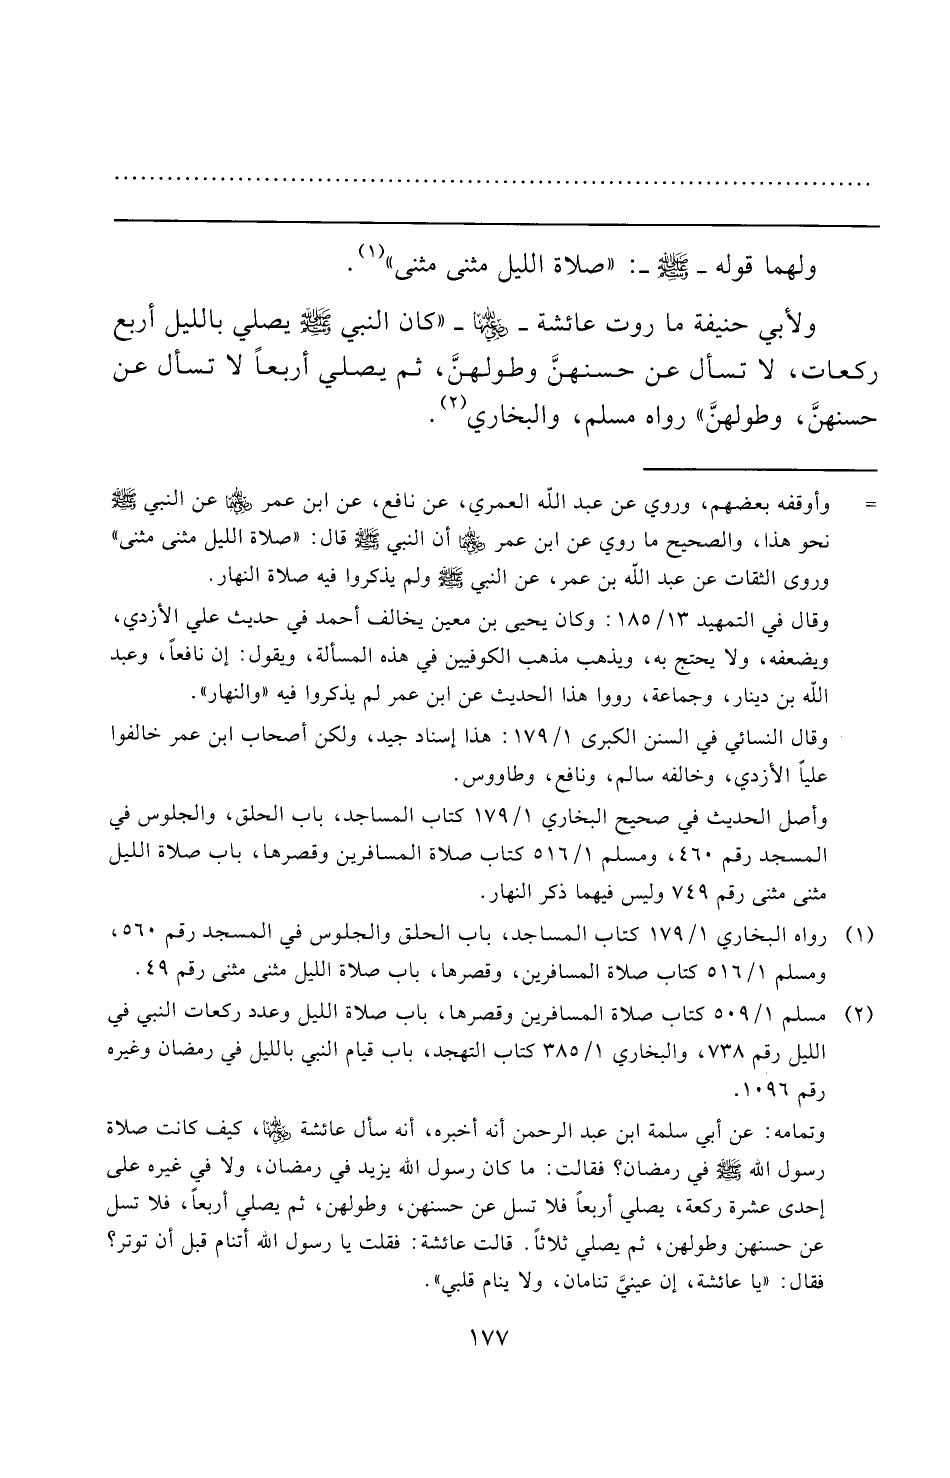 ولهما قوله ـ ﷺ ـ: «صلاة الليل مثنى مثنى»(١).
ولأبي حنيفة ما روت عائشة ـ رضي الله عنها ـ «كان النبي ﷺ يصلي بالليل أربع
ركعات، لا تسأل عن حسنهنَّ وطولهنَّ، ثم يصلي أربعاً لا تسأل عن
حسنهنَّ، وطولهنَّ» رواه مسلم، والبخاري(٢).
= وأوقفه بعضهم، وروي عن عبد الله العمري، عن نافع، عن ابن عمر رضي الله عنهما عن النبي ﷺ
نحو هذا، والصحيح ما روي عن ابن عمر رضي الله عنهما أن النبي ﷺ قال: «صلاة الليل مثنى مثنى»
وروى الثقات عن عبد الله بن عمر، عن النبي ﷺ ولم يذكروا فيه صلاة النهار.
وقال في التمهيد ١٣/ ١٨٥: وكان يحيى بن معين يخالف أحمد في حديث علي الأزدي،
ويضعفه، ولا يحتج به، ويذهب مذهب الكوفيين في هذه المسألة، ويقول: إن نافعاً، وعبد
الله بن دينار، وجماعة، رووا هذا الحديث عن ابن عمر لم يذكروا فيه «والنهار».
وقال النسائي في السنن الكبرى ١/ ١٧٩: هذا إسناد جيد، ولكن أصحاب ابن عمر خالفوا
علياً الأزدي، وخالفه سالم، ونافع، وطاووس.
وأصل الحديث في صحيح البخاري ١/ ١٧٩ كتاب المساجد، باب الحلق، والجلوس في
المسجد رقم ٤٦٠، ومسلم ١/ ٥١٦ كتاب صلاة المسافرين وقصرها، باب صلاة الليل
مثنى مثنى رقم ٧٤٩ وليس فيهما ذكر النهار.
(١) رواه البخاري ١/ ١٧٩ كتاب المساجد، باب الحلق والجلوس في المسجد رقم ٥٦٠،
ومسلم ١/ ٥١٦ كتاب صلاة المسافرين، وقصرها، باب صلاة الليل مثنى مثنى رقم ٤٩.
(٢) مسلم ١/ ٥٠٩ كتاب صلاة المسافرين وقصرها، باب صلاة الليل وعدد ركعات النبي في
الليل رقم ٧٣٨، والبخاري ١/ ٣٨٥ كتاب التهجد، باب قيام النبي بالليل في رمضان وغيره
رقم ١٠٩٦.
وتمامه: عن أبي سلمة ابن عبد الرحمن أنه أخبره، أنه سأل عائشة رضي الله عنها، كيف كانت صلاة
رسول الله ﷺ في رمضان؟ فقالت: ما كان رسول الله يزيد في رمضان، ولا في غيره على
إحدى عشرة ركعة، يصلي أربعاً فلا تسل عن حسنهن، وطولهن، ثم يصلي أربعاً، فلا تسل
عن حسنهن وطولهن، ثم يصلي ثلاثاً. قالت عائشة: فقلت يا رسول الله أتنام قبل أن توتر؟
فقال: «يا عائشة، إن عينيَّ تنامان، ولا ينام قلبي».
١٧٧